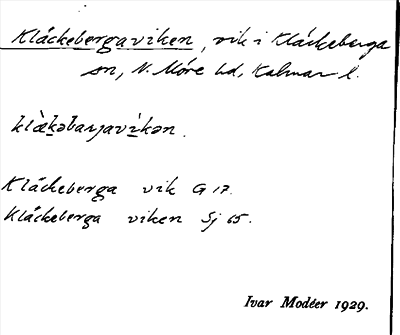 Kläckebergaviken, vik i Kläckeberga
sn, N. Möre hd, Kalmar l.
klæ̀kəbarjavìkən.
Kläckeberga vik G 17.
Kläckeberga viken Sj 65.
Ivar Modéer 1929.